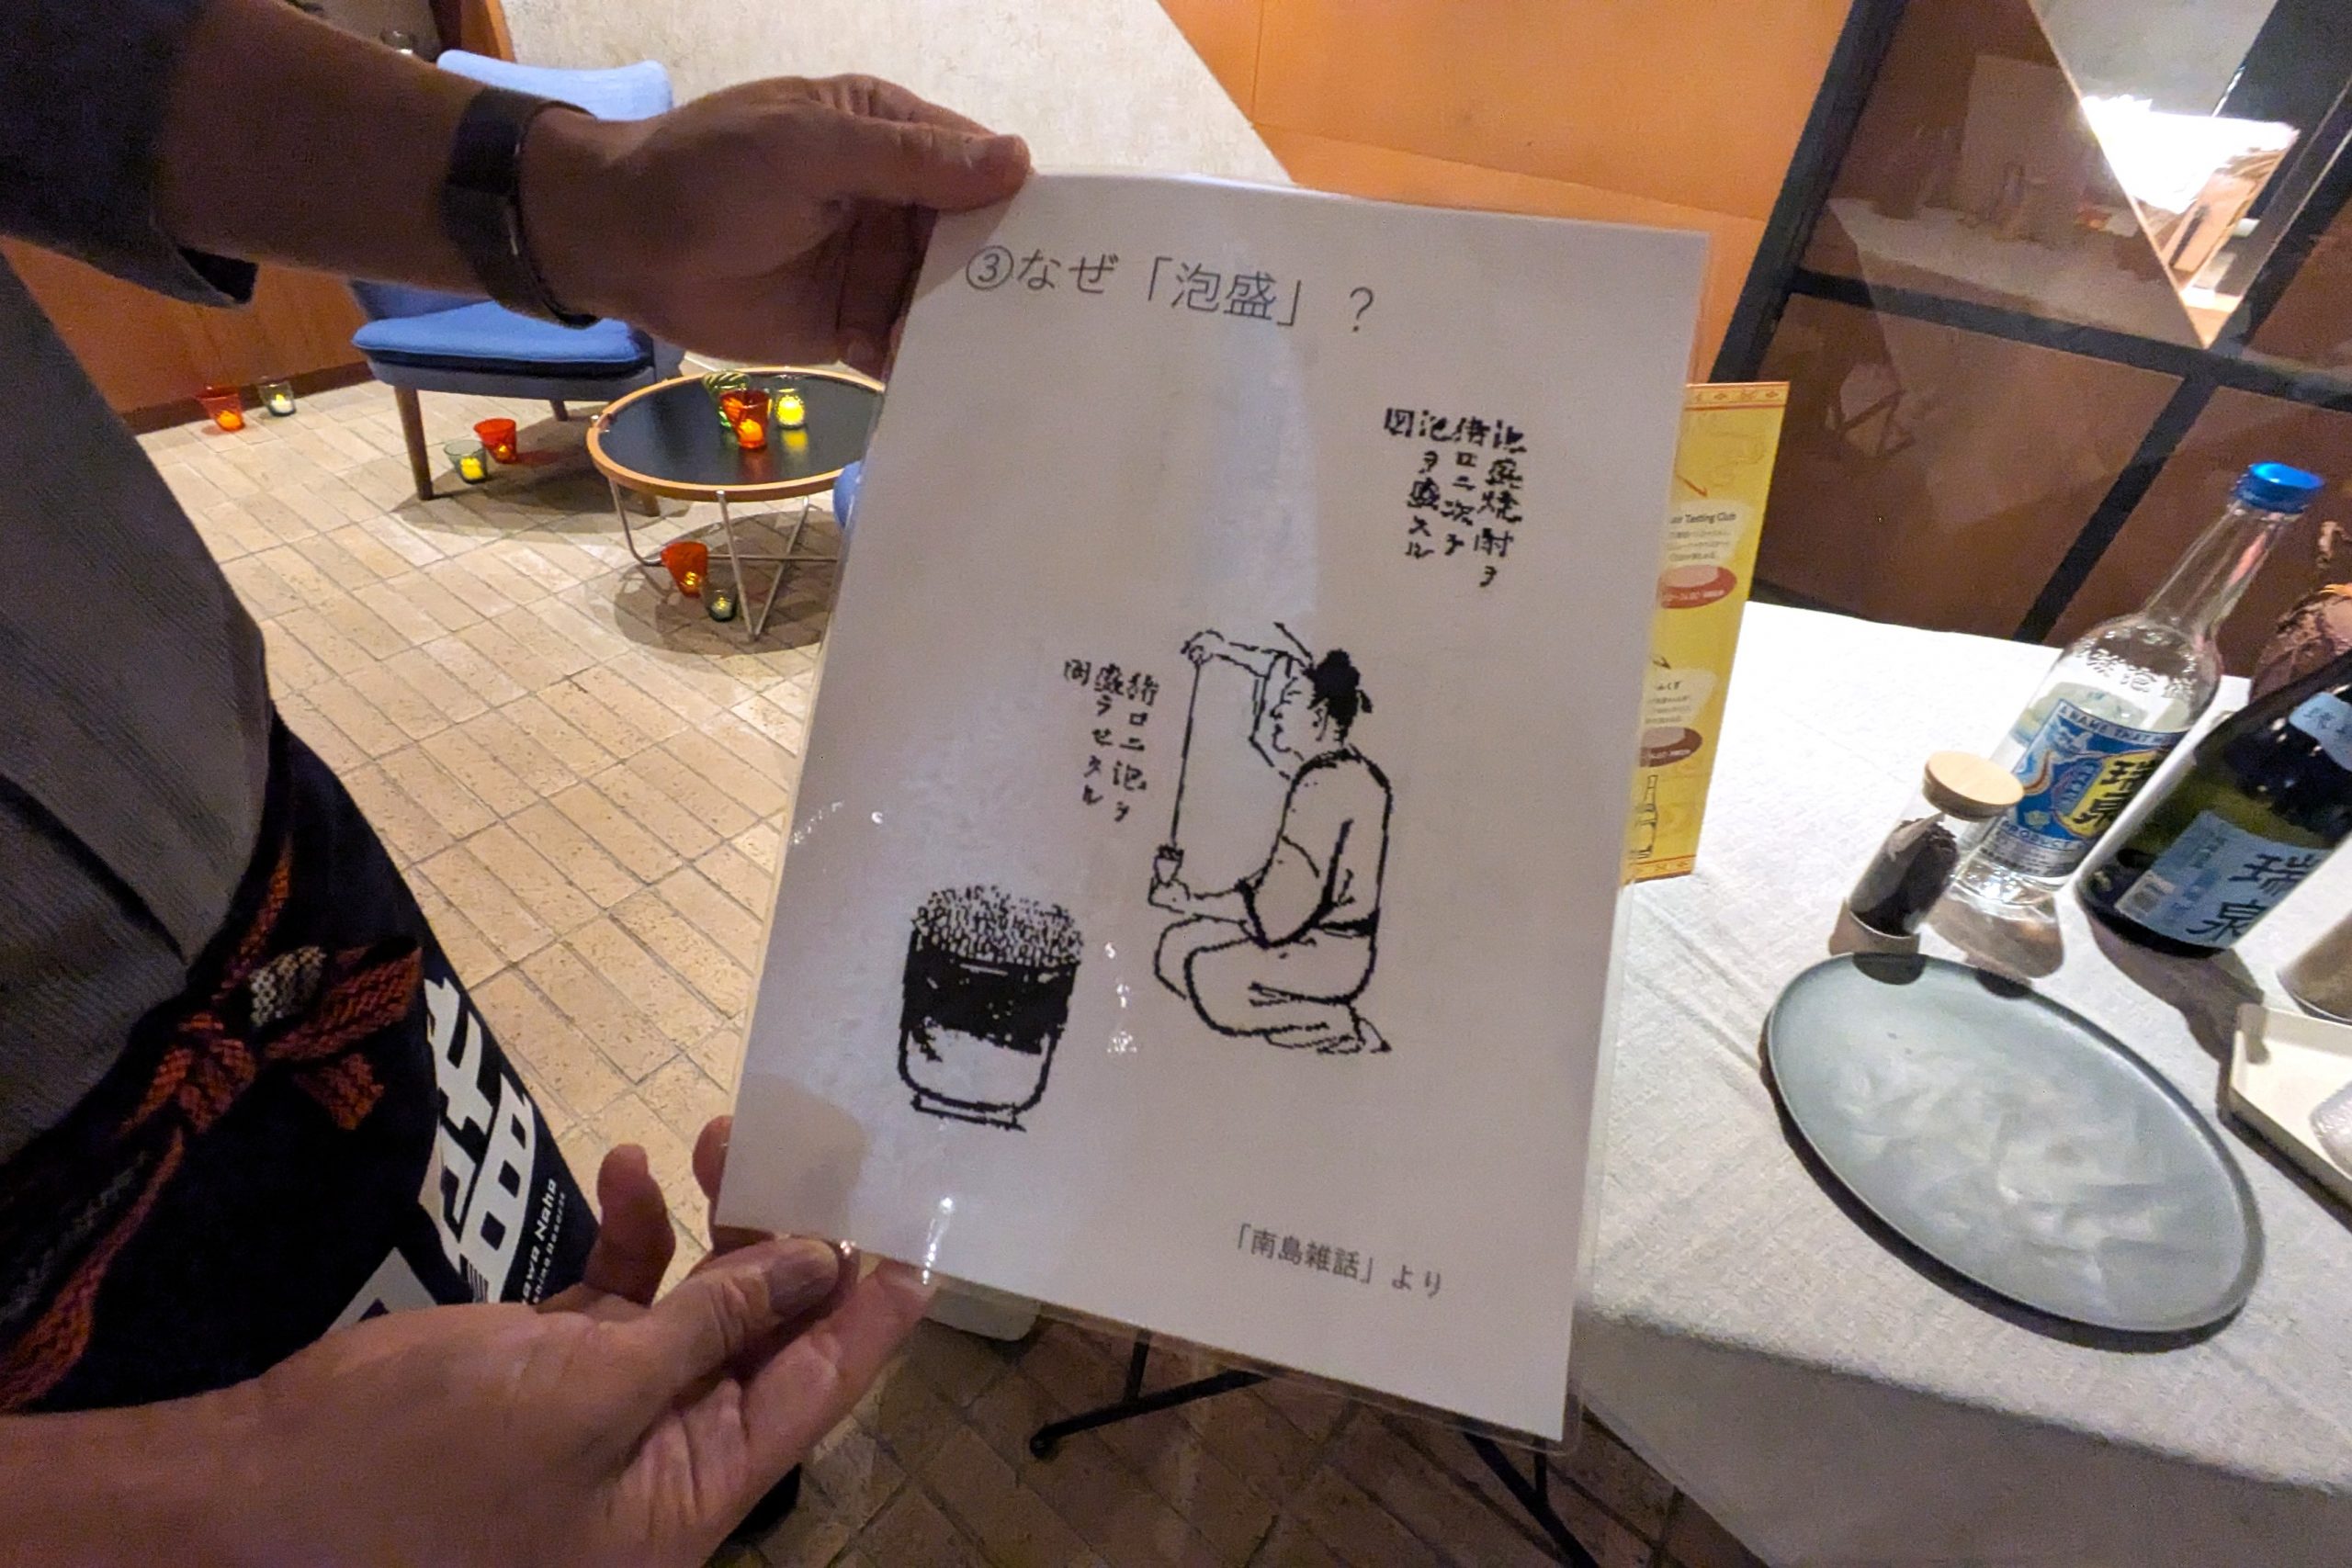 ③なぜ「泡盛」？
泡盛焼酎ヲ
猪口ニ次テ
泡ヲ盛スル
図
猪口ニ泡ヲ
盛ラセタル
図
「南島雑話」より
Tasting Club
瑞泉
瑞泉
awa Naha